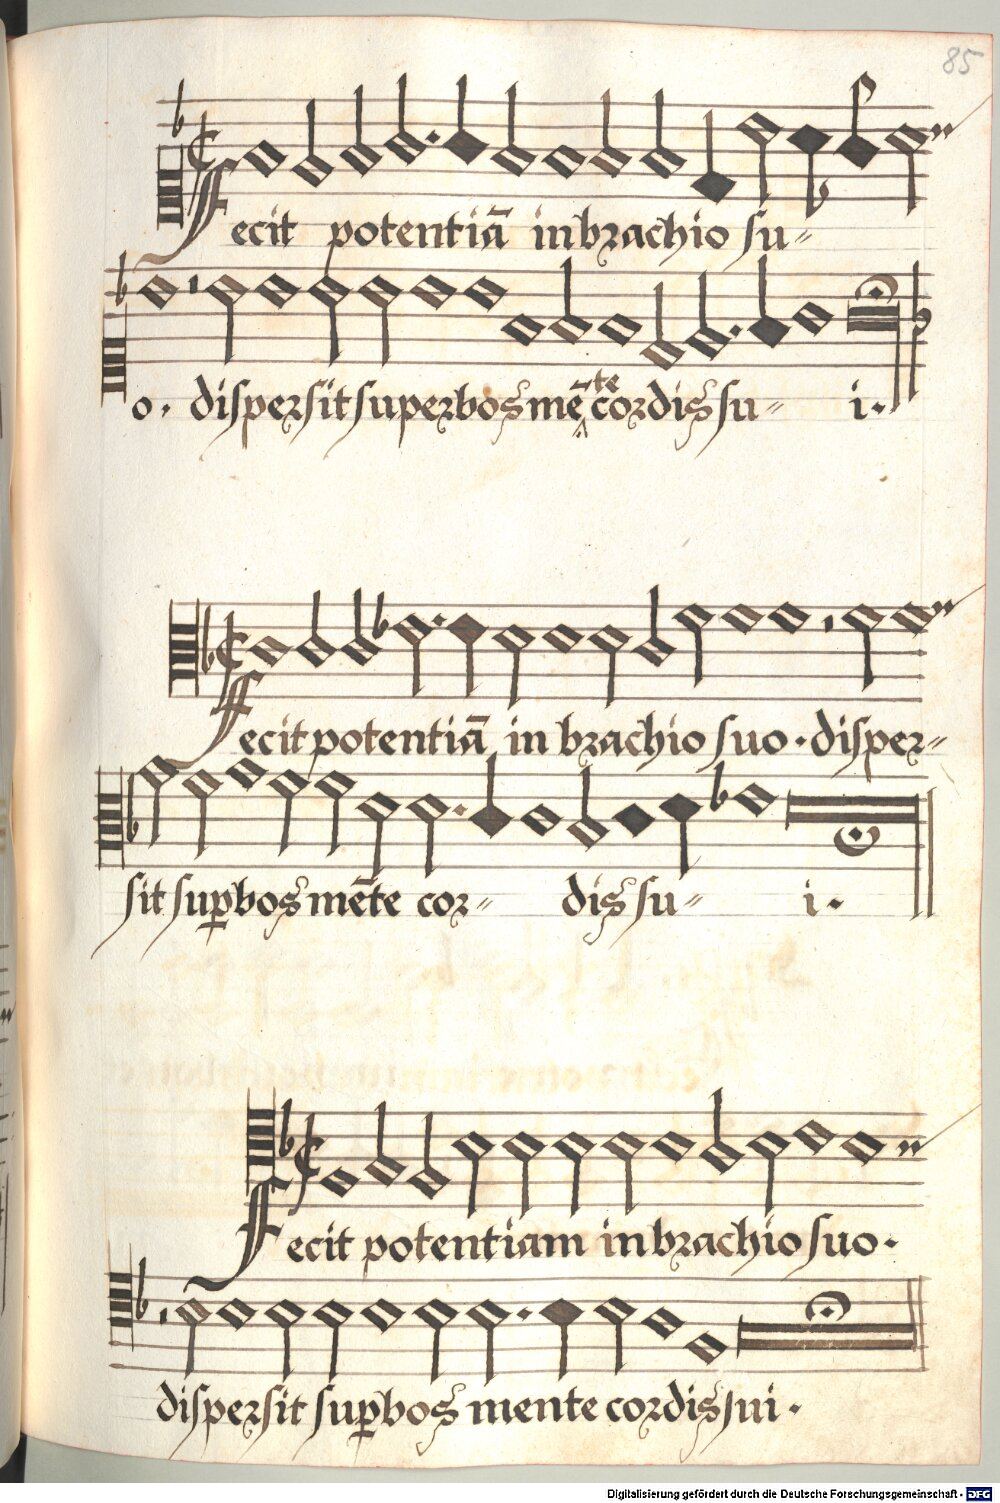 85
Fecit potentiā in brachio su〃
o. dispersit superbos mē te cordis su〃 i.
Fecit potentiā in brachio suo. disper〃
sit suꝑbos mēte cor〃 dis su〃 i.
Fecit potentiam in brachio suo.
dispersit suꝑbos mente cordis sui.
Digitalisierung gefördert durch die Deutsche Forschungsgemeinschaft - DFG